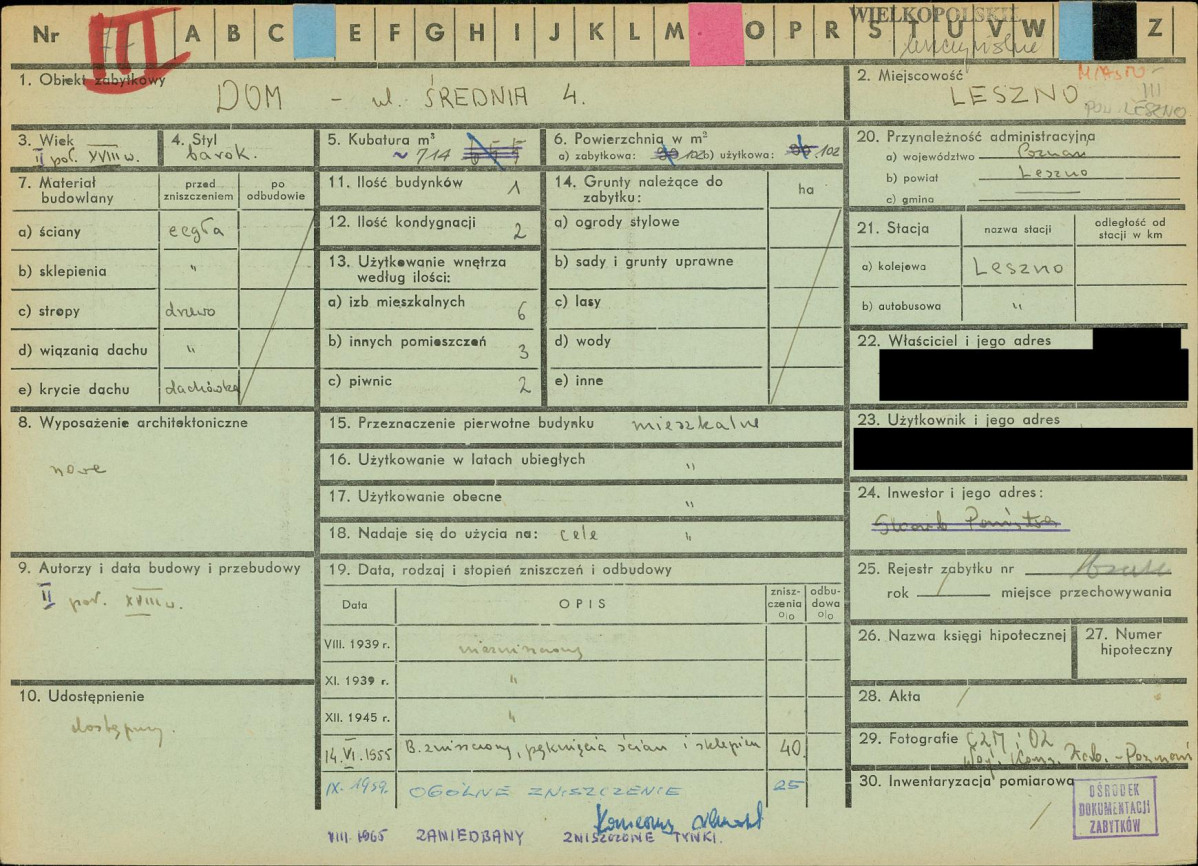 Nr III A B C E F G H I J K L M O P R S T U V W Z
WIELKOPOLSKIE
1. Obiekt zabytkowy
DOM - ul. ŚREDNIA 4.
2. Miejscowość
MIASTO -
LESZNO
III
POW. LESZNO
3. Wiek
II poł. XVIII w.
4. Styl
barok.
5. Kubatura m³
~ 714
6. Powierzchnia w m²
a) zabytkowa: 102 b) użytkowa: 102
20. Przynależność administracyjna
a) województwo Poznań
b) powiat Leszno
c) gmina
7. Materiał budowlany
przed zniszczeniem
po odbudowie
a) ściany cegła
b) sklepienia "
c) stropy drewo
d) wiązania dachu "
e) krycie dachu dachówka
11. Ilość budynków 1
12. Ilość kondygnacji 2
13. Użytkowanie wnętrza
według ilości:
a) izb mieszkalnych 6
b) innych pomieszczeń 3
c) piwnic 2
14. Grunty należące do
zabytku:
ha
a) ogrody stylowe
b) sady i grunty uprawne
c) lasy
d) wody
e) inne
21. Stacja
nazwa stacji
odległość od
stacji w km
a) kolejowa Leszno
b) autobusowa "
22. Właściciel i jego adres
23. Użytkownik i jego adres
8. Wyposażenie architektoniczne
nowe
15. Przeznaczenie pierwotne budynku mieszkalne
16. Użytkowanie w latach ubiegłych "
17. Użytkowanie obecne "
18. Nadaje się do użycia na: cele "
24. Inwestor i jego adres:
9. Autorzy i data budowy i przebudowy
II poł. XVIII w.
19. Data, rodzaj i stopień zniszczeń i odbudowy
Data
OPIS
znisz-
czenia
o/o
odbu-
dowa
o/o
VIII. 1939 r. niezniszczony
XI. 1939 r. "
XII. 1945 r. "
14.VI.1955 B. zniszczony, pęknięcia ścian i sklepień 40
IX. 1959. OGÓLNE ZNISZCZENIE 25
Konieczny remont
VIII. 1965 ZANIEDBANY ZNISZCZONE TYNKI.
25. Rejestr zabytku nr
rok miejsce przechowywania
26. Nazwa księgi hipotecznej
27. Numer
hipoteczny
10. Udostępnienie
dostępny.
28. Akta
29. Fotografie
30. Inwentaryzacja pomiarowa
OŚRODEK
DOKUMENTACJI
ZABYTKÓW